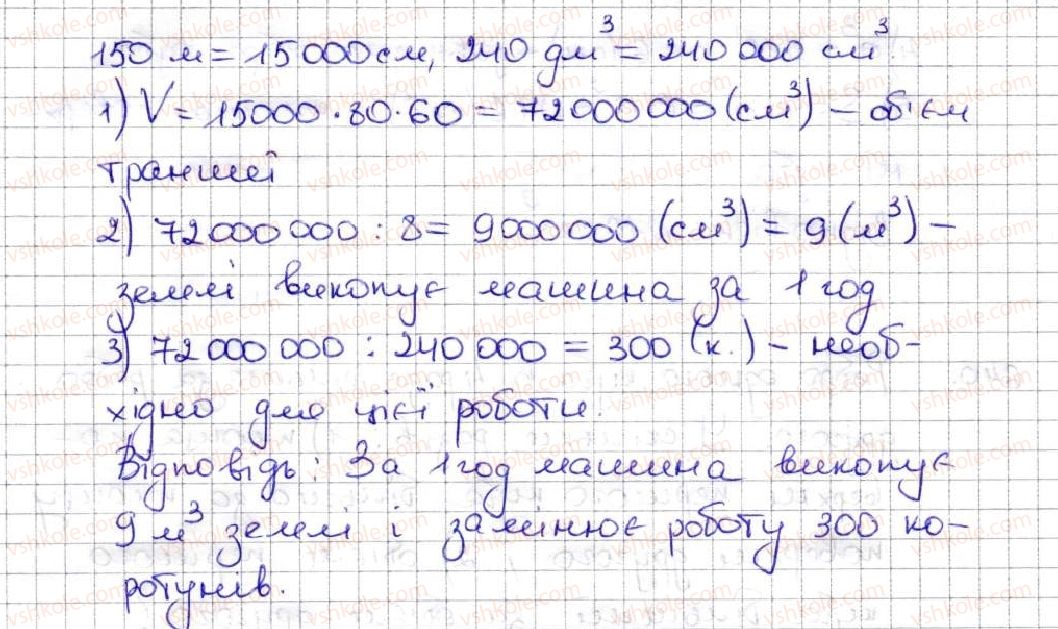 150 м = 15000 см, 240 дм³ = 240 000 см³.
1) V = 15000 · 80 · 60 = 72000000 (см³) – обʼєм
траншеї
2) 72000000 : 8 = 9000000 (см³) = 9 (м³) –
землі викопує машина за 1 год
3) 72 000 000 : 240 000 = 300 (к.) – необ-
хідно для цієї роботи.
Відповідь: За 1 год машина викопує
9 м³ землі і замінює роботу 300 ко-
ротунів.